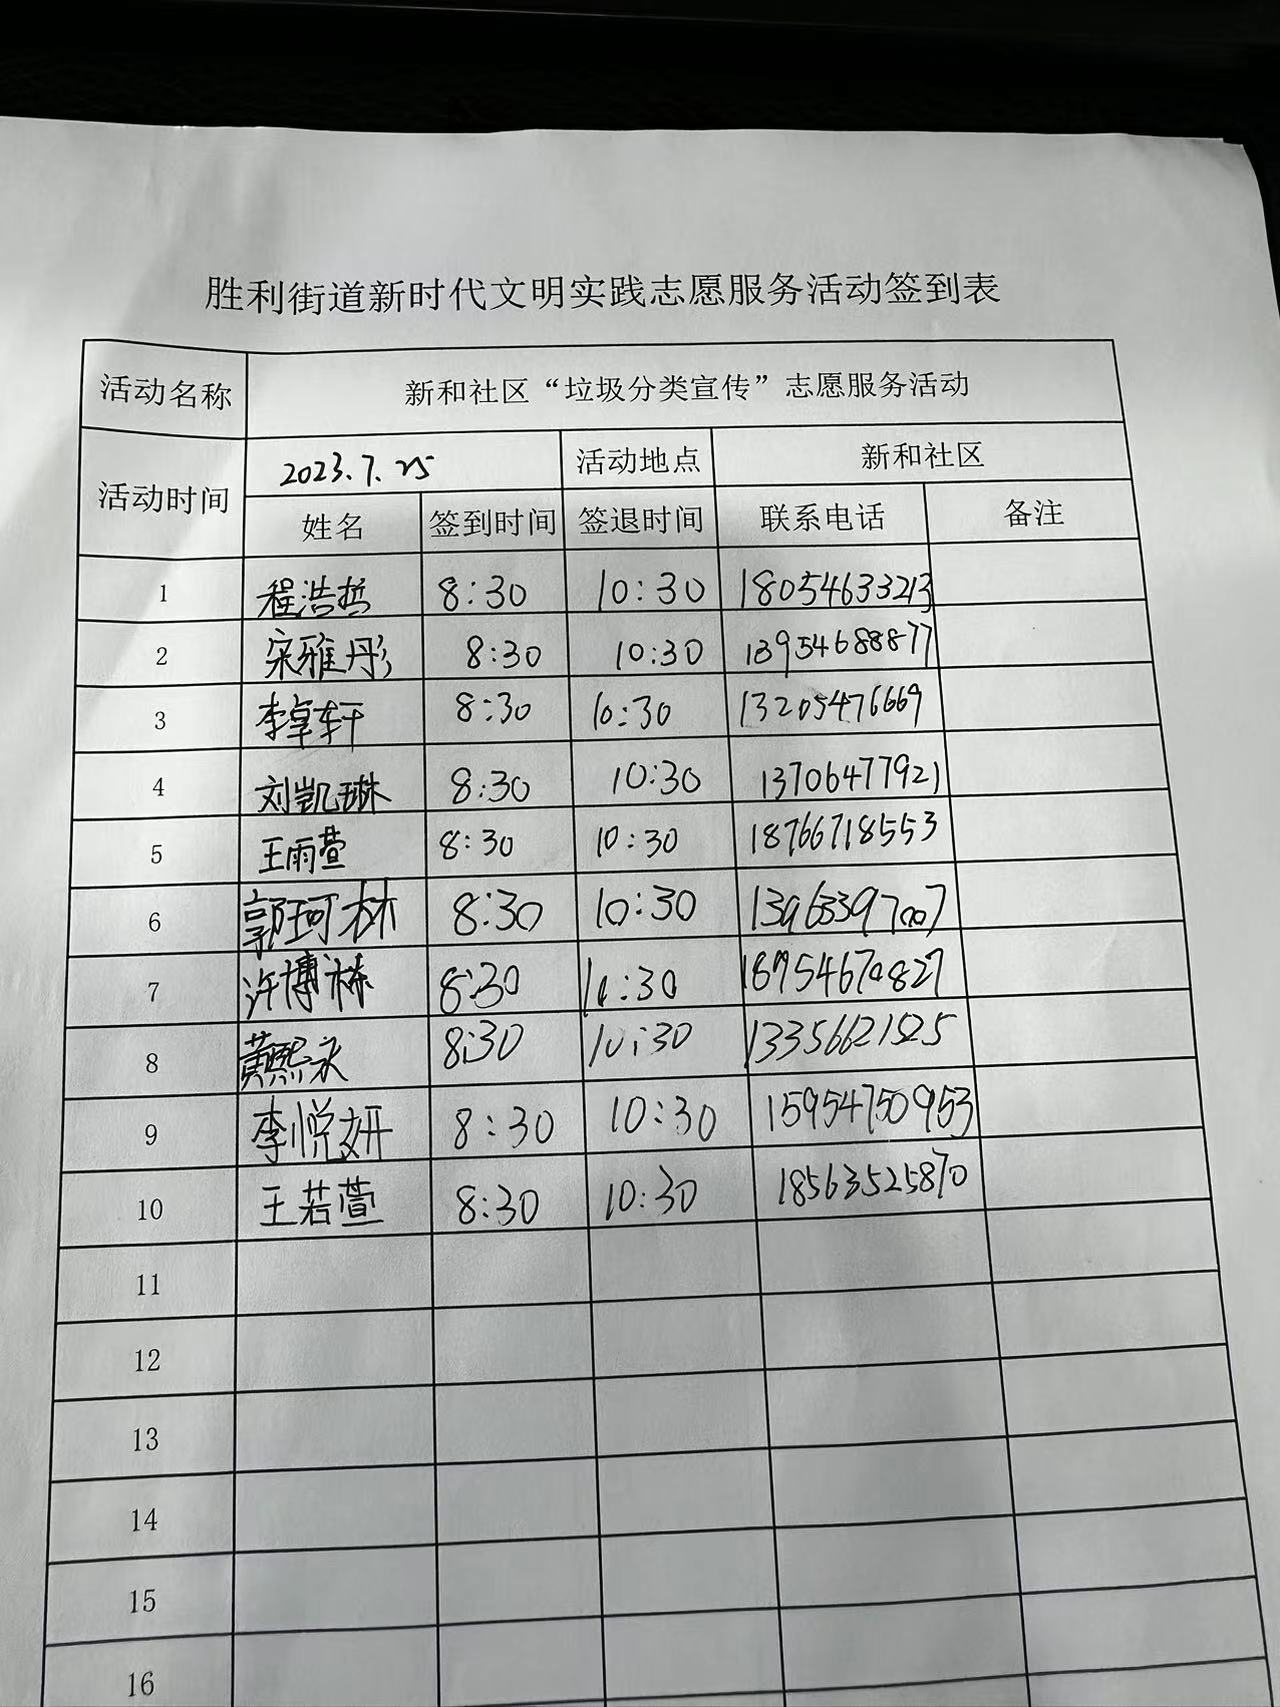 胜利街道新时代文明实践志愿服务活动签到表
活动名称 新和社区“垃圾分类宣传”志愿服务活动
活动时间 2023.7.25 活动地点 新和社区
姓名 签到时间 签退时间 联系电话 备注
1 程浩哲 8:30 10:30 18054633213
2 宋雅彤 8:30 10:30 13954688877
3 李卓轩 8:30 10:30 13205476669
4 刘凯琳 8:30 10:30 13706477921
5 王雨萱 8:30 10:30 18766718553
6 郭珂林 8:30 10:30 13963397007
7 许博 8:30 10:30 18954670827
8 黄熙永 8:30 10:30 13356621525
9 李悦妍 8:30 10:30 15954750953
10 王若萱 8:30 10:30 18563525870
11
12
13
14
15
16